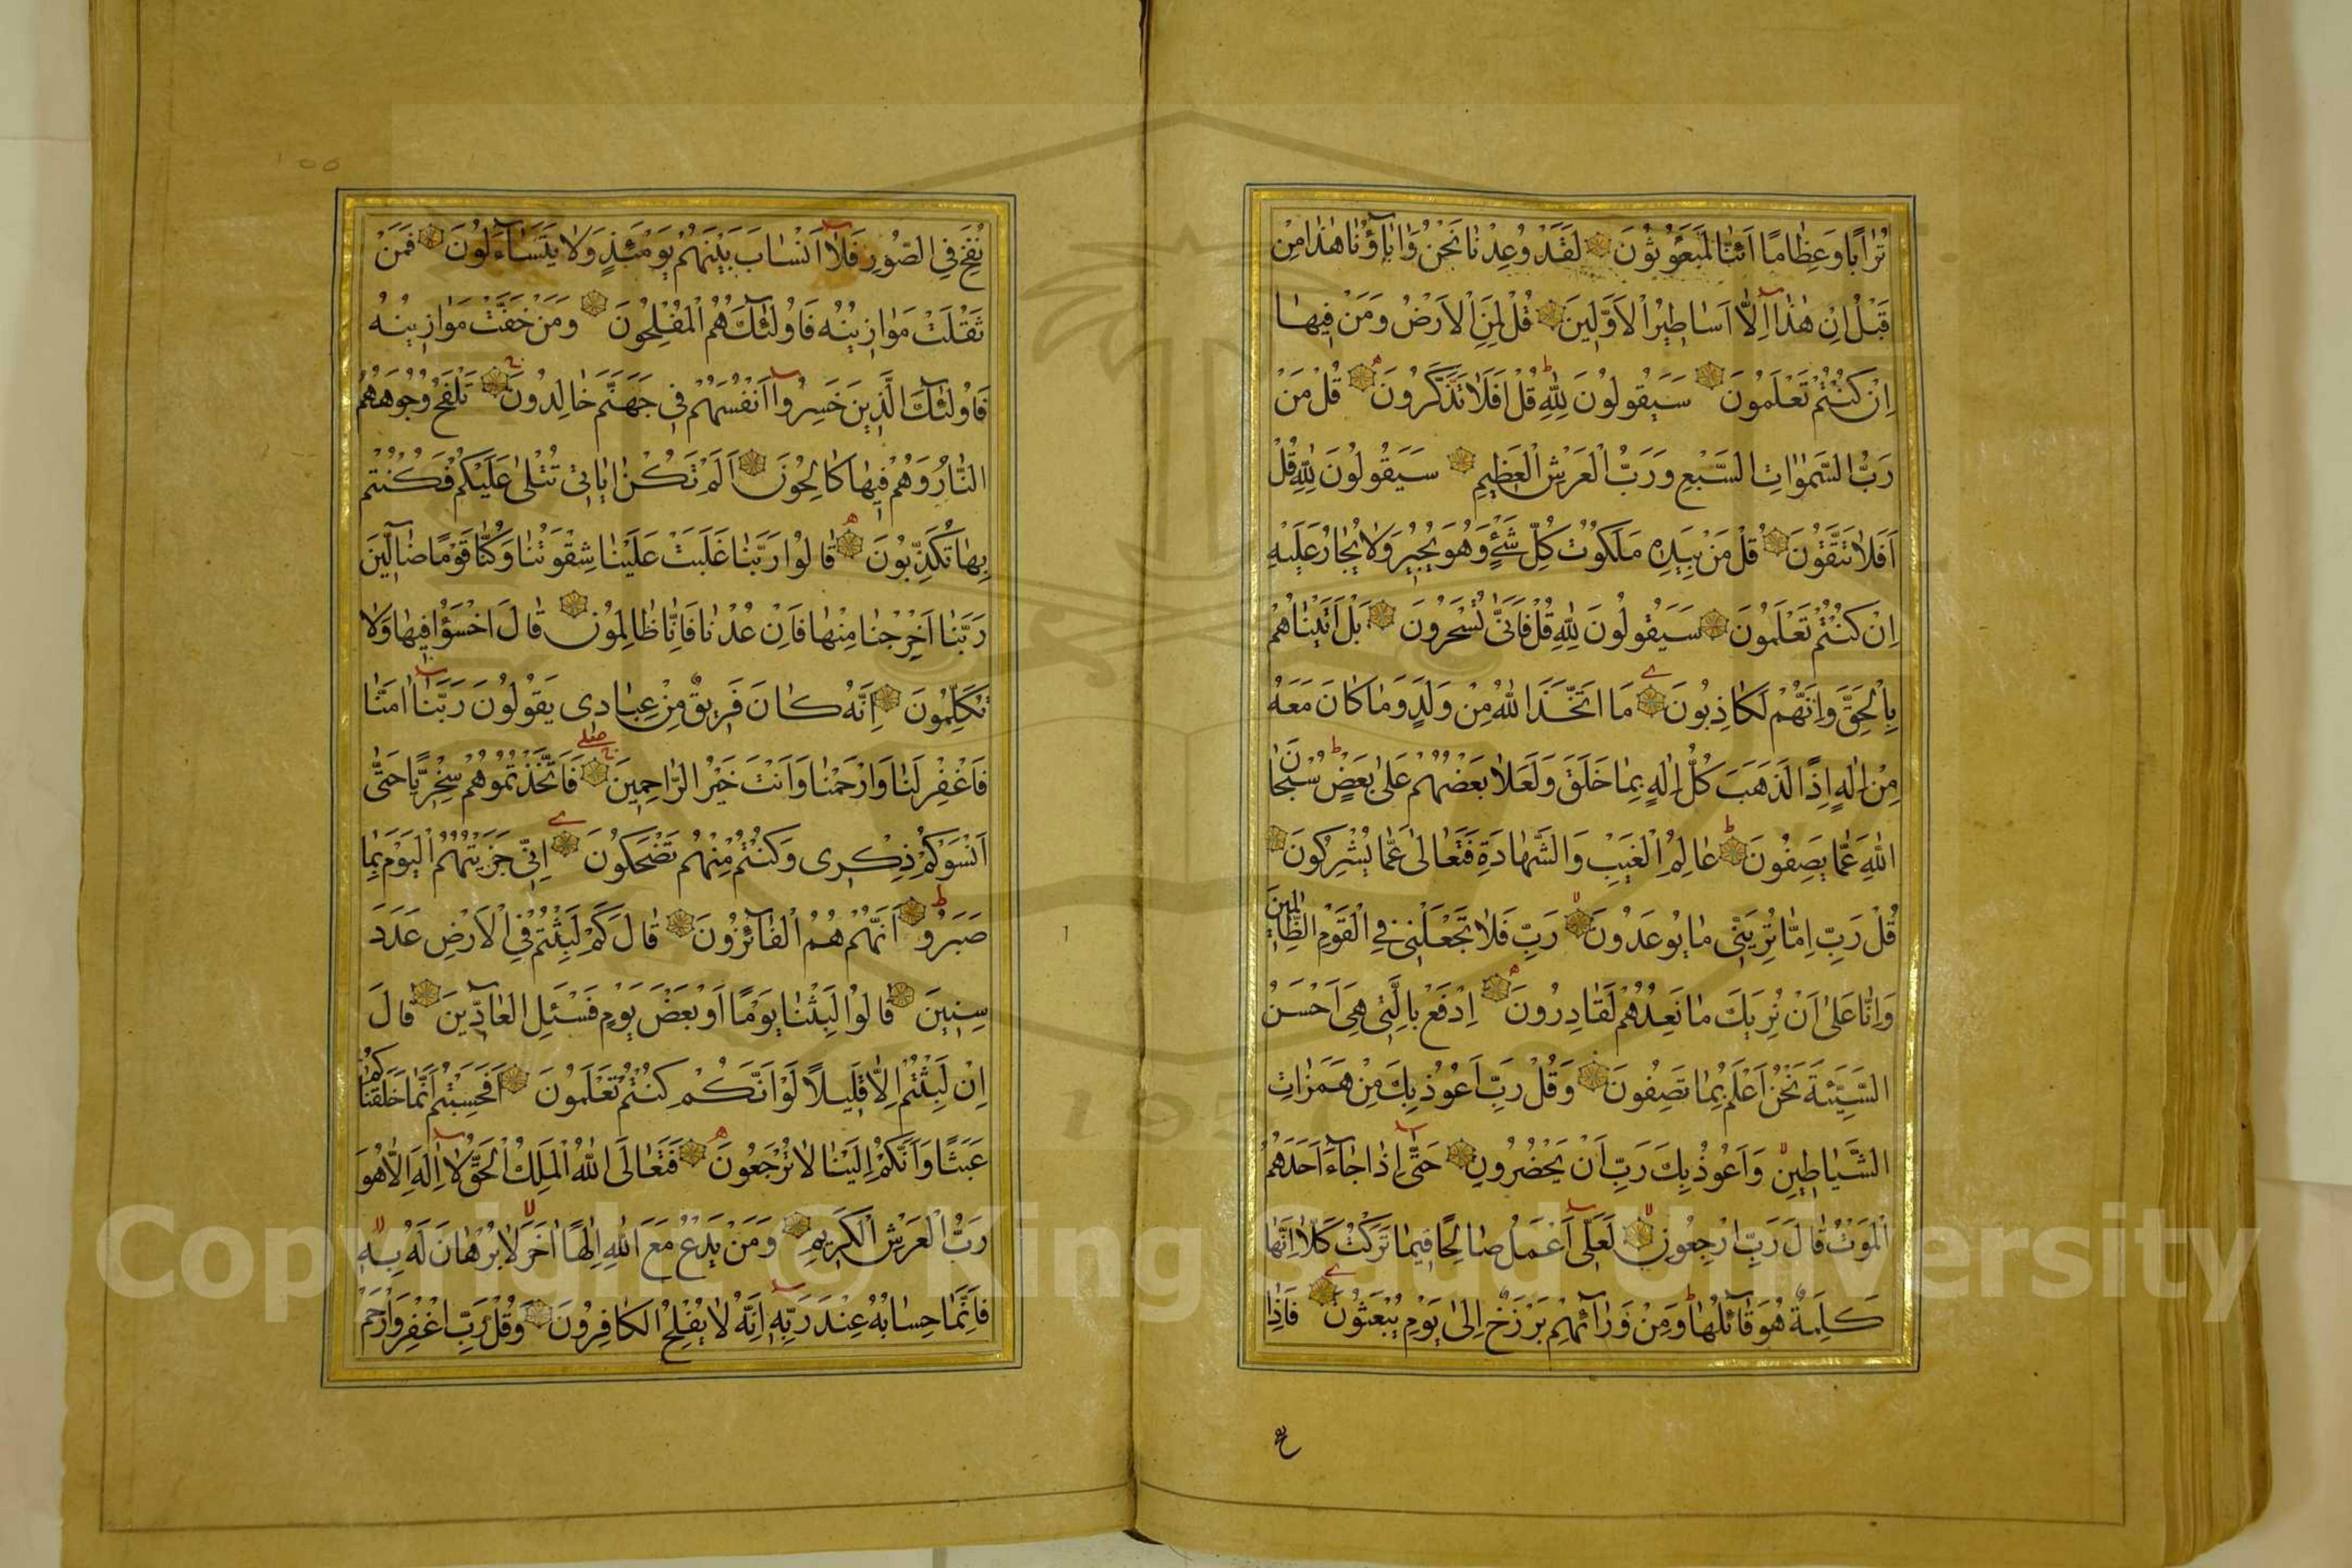 تُرَابًا وَعِظَامًا اَئِنَّا لَمَبْعُوثُونَ لَقَدْ وُعِدْنَا نَحْنُ وَاٰبَاؤُنَا هٰذَا مِنْ
قَبْلُ اِنْ هٰذَا اِلَّا اَسَاطِيرُ الْاَوَّلِينَ قُلْ لِمَنِ الْاَرْضُ وَمَنْ فِيهَا
اِنْ كُنْتُمْ تَعْلَمُونَ سَيَقُولُونَ لِلّٰهِ قُلْ اَفَلَا تَذَكَّرُونَ قُلْ مَنْ
رَبُّ السَّمٰوَاتِ السَّبْعِ وَرَبُّ الْعَرْشِ الْعَظِيمِ سَيَقُولُونَ لِلّٰهِ قُلْ
اَفَلَا تَتَّقُونَ قُلْ مَنْ بِيَدِهِ مَلَكُوتُ كُلِّ شَيْءٍ وَهُوَ يُجِيرُ وَلَا يُجَارُ عَلَيْهِ
اِنْ كُنْتُمْ تَعْلَمُونَ سَيَقُولُونَ لِلّٰهِ قُلْ فَاَنّٰى تُسْحَرُونَ بَلْ اَتَيْنَاهُمْ
بِالْحَقِّ وَاِنَّهُمْ لَكَاذِبُونَ مَا اتَّخَذَ اللّٰهُ مِنْ وَلَدٍ وَمَا كَانَ مَعَهُ
مِنْ اِلٰهٍ اِذًا لَذَهَبَ كُلُّ اِلٰهٍ بِمَا خَلَقَ وَلَعَلَا بَعْضُهُمْ عَلٰى بَعْضٍ سُبْحَانَ
اللّٰهِ عَمَّا يَصِفُونَ عَالِمُ الْغَيْبِ وَالشَّهَادَةِ فَتَعَالٰى عَمَّا يُشْرِكُونَ
قُلْ رَبِّ اِمَّا تُرِيَنِّي مَا يُوعَدُونَ رَبِّ فَلَا تَجْعَلْنِي فِي الْقَوْمِ الظَّالِمِينَ
وَاِنَّا عَلٰى اَنْ نُرِيَكَ مَا نَعِدُهُمْ لَقَادِرُونَ اِدْفَعْ بِالَّتِي هِيَ اَحْسَنُ
السَّيِّئَةَ نَحْنُ اَعْلَمُ بِمَا تَصِفُونَ وَقُلْ رَبِّ اَعُوذُ بِكَ مِنْ هَمَزَاتِ
الشَّيَاطِينِ وَاَعُوذُ بِكَ رَبِّ اَنْ يَحْضُرُونِ حَتّٰى اِذَا جَاءَ اَحَدَهُمُ
الْمَوْتُ قَالَ رَبِّ ارْجِعُونِ لَعَلِّي اَعْمَلُ صَالِحًا فِيمَا تَرَكْتُ كَلَّا اِنَّهَا
كَلِمَةٌ هُوَ قَائِلُهَا وَمِنْ وَرَائِهِمْ بَرْزَخٌ اِلٰى يَوْمِ يُبْعَثُونَ فَاِذَا
نُفِخَ فِي الصُّورِ فَلَا اَنْسَابَ بَيْنَهُمْ يَوْمَئِذٍ وَلَا يَتَسَاءَلُونَ فَمَنْ
ثَقُلَتْ مَوَازِينُهُ فَاُولٰئِكَ هُمُ الْمُفْلِحُونَ وَمَنْ خَفَّتْ مَوَازِينُهُ
فَاُولٰئِكَ الَّذِينَ خَسِرُوا اَنْفُسَهُمْ فِي جَهَنَّمَ خَالِدُونَ تَلْفَحُ وُجُوهَهُمُ
النَّارُ وَهُمْ فِيهَا كَالِحُونَ اَلَمْ تَكُنْ اٰيَاتِي تُتْلٰى عَلَيْكُمْ فَكُنْتُمْ
بِهَا تُكَذِّبُونَ قَالُوا رَبَّنَا غَلَبَتْ عَلَيْنَا شِقْوَتُنَا وَكُنَّا قَوْمًا ضَالِّينَ
رَبَّنَا اَخْرِجْنَا مِنْهَا فَاِنْ عُدْنَا فَاِنَّا ظَالِمُونَ قَالَ اخْسَؤُا فِيهَا وَلَا
تُكَلِّمُونِ اِنَّهُ كَانَ فَرِيقٌ مِنْ عِبَادِي يَقُولُونَ رَبَّنَا اٰمَنَّا
فَاغْفِرْ لَنَا وَارْحَمْنَا وَاَنْتَ خَيْرُ الرَّاحِمِينَ فَاتَّخَذْتُمُوهُمْ سِخْرِيًّا حَتّٰى
اَنْسَوْكُمْ ذِكْرِي وَكُنْتُمْ مِنْهُمْ تَضْحَكُونَ اِنِّي جَزَيْتُهُمُ الْيَوْمَ بِمَا
صَبَرُوا اَنَّهُمْ هُمُ الْفَائِزُونَ قَالَ كَمْ لَبِثْتُمْ فِي الْاَرْضِ عَدَدَ
سِنِينَ قَالُوا لَبِثْنَا يَوْمًا اَوْ بَعْضَ يَوْمٍ فَسْئَلِ الْعَادِّينَ قَالَ
اِنْ لَبِثْتُمْ اِلَّا قَلِيلًا لَوْ اَنَّكُمْ كُنْتُمْ تَعْلَمُونَ اَفَحَسِبْتُمْ اَنَّمَا خَلَقْنَاكُمْ
عَبَثًا وَاَنَّكُمْ اِلَيْنَا لَا تُرْجَعُونَ فَتَعَالَى اللّٰهُ الْمَلِكُ الْحَقُّ لَا اِلٰهَ اِلَّا هُوَ
رَبُّ الْعَرْشِ الْكَرِيمِ وَمَنْ يَدْعُ مَعَ اللّٰهِ اِلٰهًا اٰخَرَ لَا بُرْهَانَ لَهُ بِهِ
فَاِنَّمَا حِسَابُهُ عِنْدَ رَبِّهِ اِنَّهُ لَا يُفْلِحُ الْكَافِرُونَ وَقُلْ رَبِّ اغْفِرْ وَارْحَمْ
Copyright © King Saud University